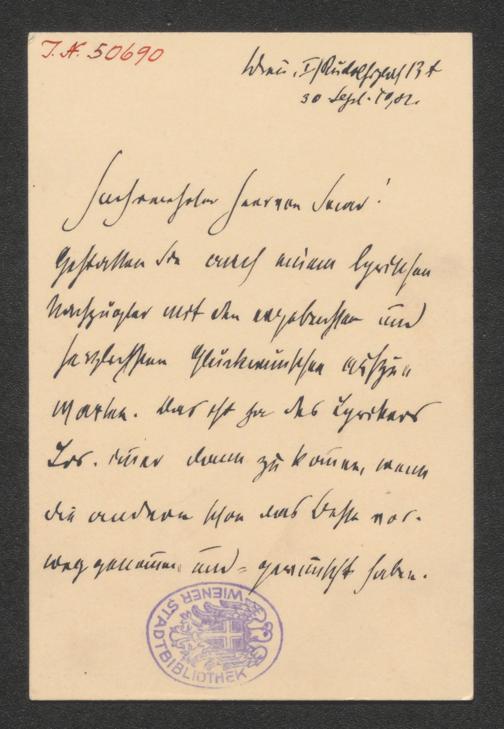 I. N. 50690
Wien, I/Rudolfsplatz 13A
30 Sept. 1902.
Hochverehrter Herr von Saar!
Gestatten Sie auch einem lyrischen
Nachzügler mit den ergebensten und
herzlichsten Glückwünschen aufzu-
warten. Das ist ja des Lyrikers
Los. immer dann zu kommen, wenn
die andern schon das Beste vor-
weggenommen und - gewünscht haben.
WIENER STADTBIBLIOTHEK